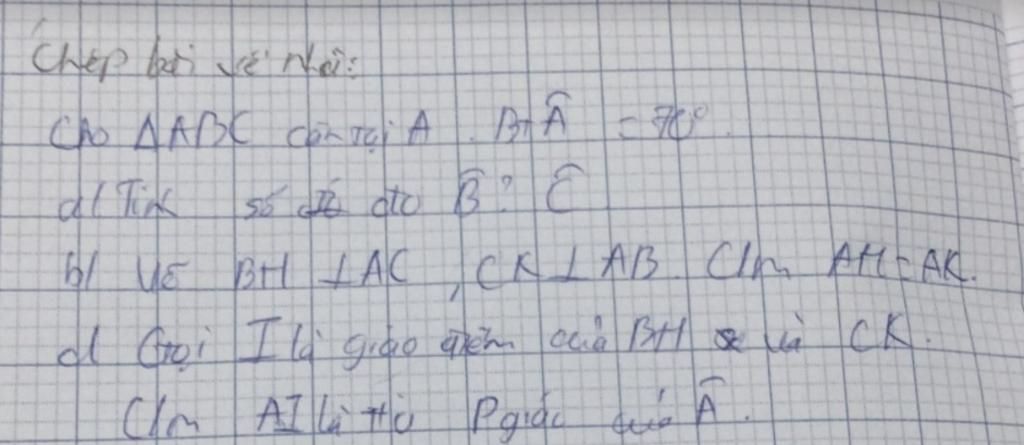 Chép bài về nhà:
Cho ΔABC cân tại A. Bt Â = 70°.
a/ Tính số đo B̂? Ĉ
b/ Vẽ BH ⊥ AC, CK ⊥ AB. C/m AH = AK.
c/ Gọi I là giao điểm của BH và CK.
C/m AI là tia Pgiác của Â.